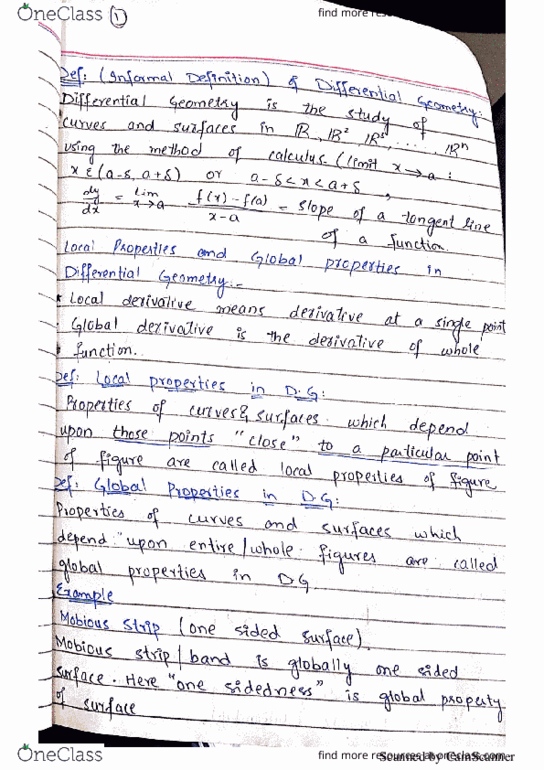 OneClass
1
find more res
Def: (Informal Definition) of Differential Geometry:
Differential Geometry is the study of
curves and surfaces in R, R², R³, ..., Rⁿ
using the method of calculus. (limit x→a :
x ε (a-δ, a+δ) or a-δ<x<a+δ,
dy/dx = lim x→a f(x)-f(a)/x-a = slope of a tangent line
of a function.
Local Properties and Global properties in
Differential Geometry:-
* Local derivative means derivative at a single point
Global derivative is the derivative of whole
* function..
Def: Local properties in D.G:
Properties of curves & surfaces which depend
upon those points "close" to a particular point
of figure are called local properties of figure
Def: Global Properties in DG:
Properties of curves and surfaces which
depend upon entire/whole figures are called
global properties in DG
Example
Mobious strip (one sided surface).
Mobious strip/band is globally one sided
surface. Here "one sidedness" is global property
of surface
OneClass
find more resources at oneclass.com
Scanned by CamScanner